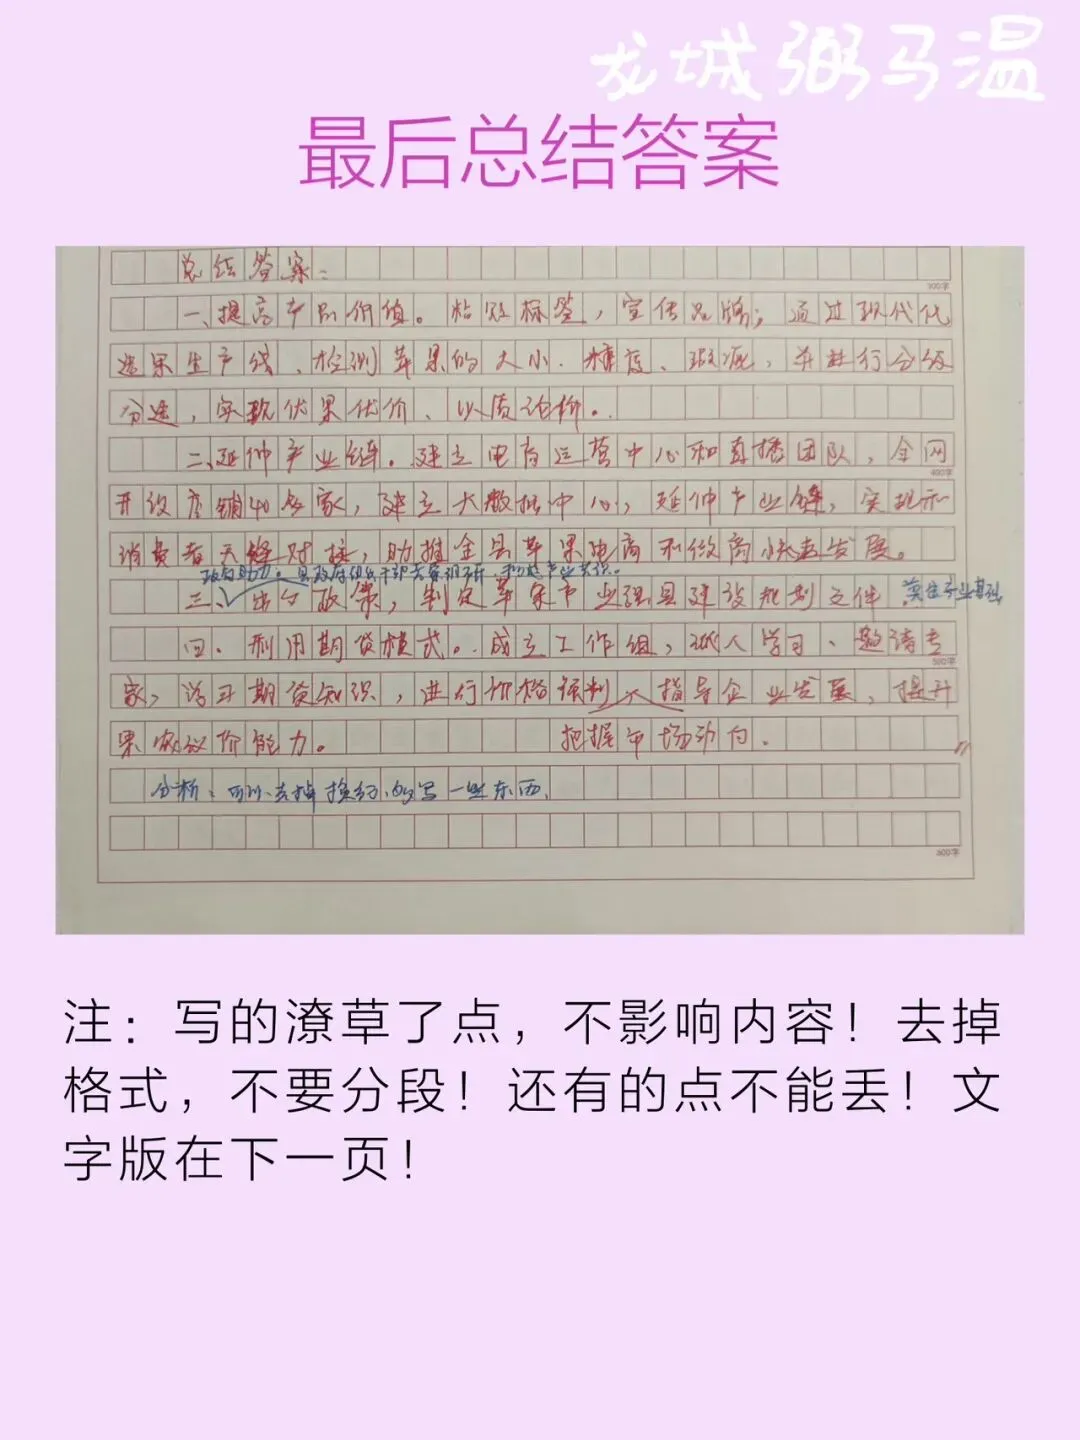 龙城弼马温
最后总结答案
总结答案:
300字
一、提高产品价值。粘贴标签,宣传品牌;通过现代化
选果生产线、检测苹果的大小、糖度、瑕疵,并进行分级
分选,实现优果优价、以质论价。
二、延伸产业链。建立电商运营中心和直播团队,全网
400字
开设店铺40多家,建立大数据中心,延伸产业链,实现和
消费者无缝对接,助推全县苹果电商和微商快速发展。
政府助力。县政府组织干部去调研,产业共识。
三、出台政策,制定苹果产业强县建设规划文件,奠定产业基础
四、利用期货模式。成立工作组,派人学习、邀请专
500字
家,学习期货知识,进行价格预判,指导企业发展,提升
果农议价能力。 把握市场动向。
分析:可以去掉 的写一些东西。
600字
注:写的潦草了点,不影响内容!去掉
格式,不要分段!还有的点不能丢!文
字版在下一页!